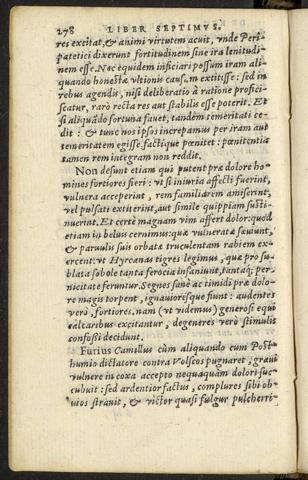 278 LIBER SEPTIMVS.
res excitat, & animi virtutem acuit, vnde Peri
patetici dixerunt fortitudinem sine ira lenitudi
nem esse. Nec equidem inficiari possum iram ali-
quando honestæ vltionis causam extitisse: sed in
rebus agendis, nisi deliberatio à ratione profici-
scatur, rarò recta res aut stabilis esse poterit. Et
si aliquādo fortuna fauet, tandem temeritati ce-
dit: & tunc nos ipsos increpamus per iram aut
temeritatem egisse, factíque pœnitet: pœnitentia
tamen rem integram non reddit.
Non desunt etiam qui putent præ dolore ho-
mines fortiores fieri: vt si iniuria affecti fuerint,
vulnera acceperint, rem familiarem amiserint,
vel pulsati extiterint, aut simile quippiam susti-
nuerint. Et certè magnam vim affert dolor: quod
etiam in beluis cernimus: quæ vulneratæ sæuiunt,
& paruulis suis orbatæ truculentam rabiem ex-
ercent: vt Hyrcanas tigres legimus, quæ pro su-
blata sobole tanta ferocia insaniunt, tantaq; per-
nicitate feruntur. Segnes sanè ac timidi præ dolo-
re magis torpent, ignauioresque fiunt: audentes
verò, fortiores. nam (vt videmus) generosi equi
calcaribus excitantur, degeneres verò stimulis
confossi decidunt.
Furius Camillus cùm aliquando cum Post-
humio dictatore contra Volscos pugnaret, graui
vulnere in coxa accepto nequaquam dolori suc-
cubuit: sed ardentior factus, complures sibi ob-
uios strauit, & victor quasi fulgur pulcherri-